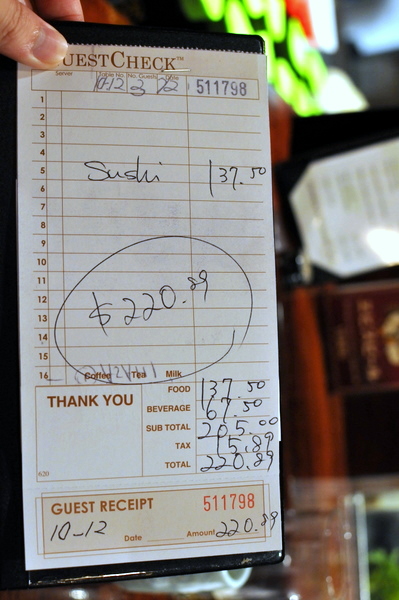 UESTCHECK™
Server Table No. No. Guests Date
10-12 3 511798
1
2
3
4
5 Sushi 137.50
6
7
8
9
10
11
12 $220.89
13
14
15
16 Coffee Tea Milk
THANK YOU
FOOD 137.50
BEVERAGE 67.50
SUB TOTAL 205.00
TAX 15.89
TOTAL 220.89
620
GUEST RECEIPT 511798
10-12 Date Amount 220.89